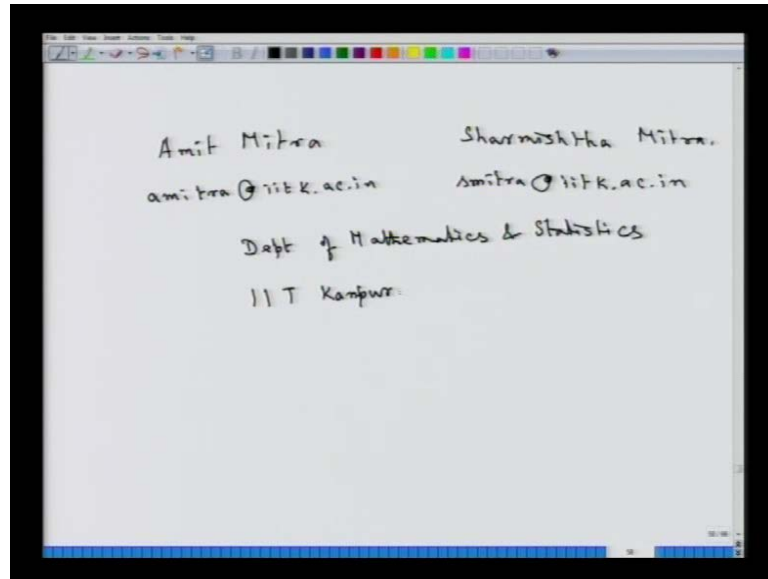 File Edit View Insert Actions Tools Help
Amit Mitra Sharmishtha Mitra.
amitra@iitk.ac.in smitra@iitk.ac.in
Dept of Mathematics & Statistics
IIT Kanpur.